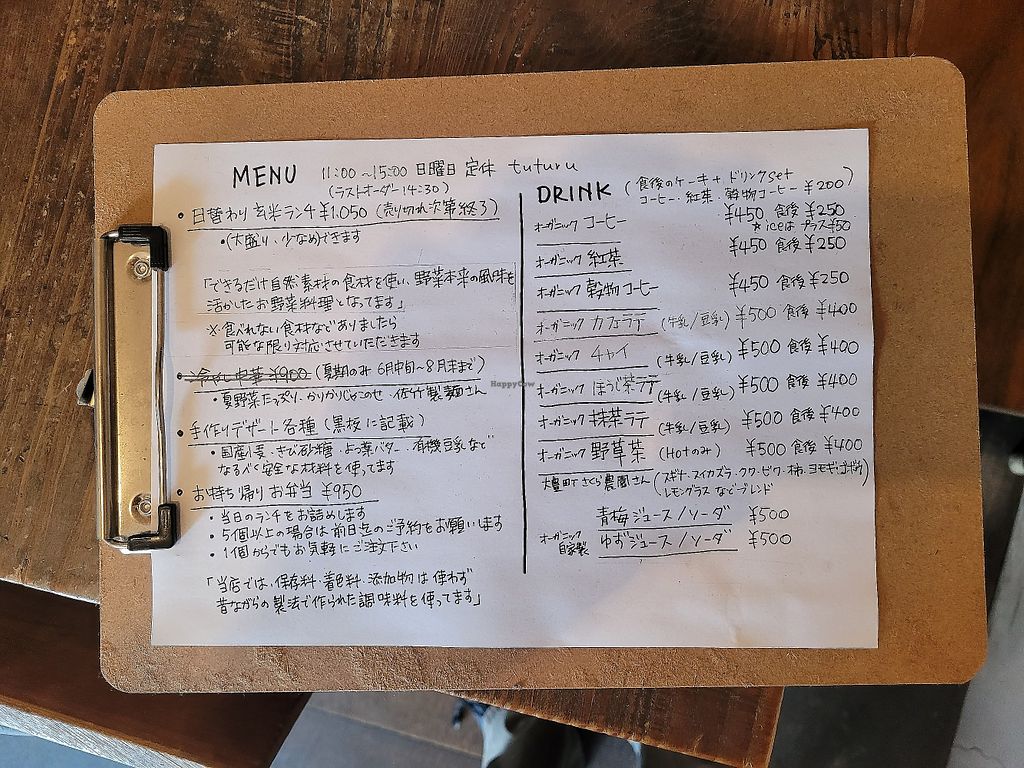 MENU 11:00～15:00 日曜日 定休 tuturu
(ラストオーダー14:30)
・日替わり 玄米ランチ ¥1.050 (売り切れ次第終了)
・(大盛り、少なめ)できます
「できるだけ自然素材の食材を使い、野菜本来の風味を
活かしたお野菜料理となってます」
※食べれない食材などありましたら
可能な限り対応させていただきます
・冷やし中華 ¥900 (夏期のみ 6月中旬～8月末まで)
・夏野菜たっぷり、かりかりじゃこのせ、佐竹製麺さん
・手作りデザート各種 (黒板に記載)
・国産小麦・きび砂糖・よつ葉バター・有機豆乳など
なるべく安全な材料を使ってます
・お持ち帰りお弁当 ¥950
・当日のランチをお詰めします
・5個以上の場合は前日迄のご予約をお願います
・1個からでもお気軽にご注文下さい
「当店では、保存料・着色料・添加物は使わず
昔ながらの製法で作られた調味料を使ってます」
DRINK (食後のケーキ+ドリンクset
コーヒー・紅茶・穀物コーヒー ¥200)
オーガニック コーヒー ¥450 食後 ¥250
☆iceは プラス¥50
オーガニック 紅茶 ¥450 食後 ¥250
オーガニック 穀物コーヒー ¥450 食後 ¥250
オーガニック カフェラテ (牛乳/豆乳) ¥500 食後 ¥400
オーガニック チャイ (牛乳/豆乳) ¥500 食後 ¥400
オーガニック ほうじ茶ラテ (牛乳/豆乳) ¥500 食後 ¥400
オーガニック 抹茶ラテ (牛乳/豆乳) ¥500 食後 ¥400
オーガニック 野草茶 (Hotのみ) ¥500 食後 ¥400
さくら農園さん (スギナ・スイカズラ・クワ・ビワ・柿・ヨモギ・ゴボウ
レモングラス などブレンド)
青梅ジュース/ソーダ ¥500
オーガニック
自家製 ゆずジュース/ソーダ ¥500
HappyCow